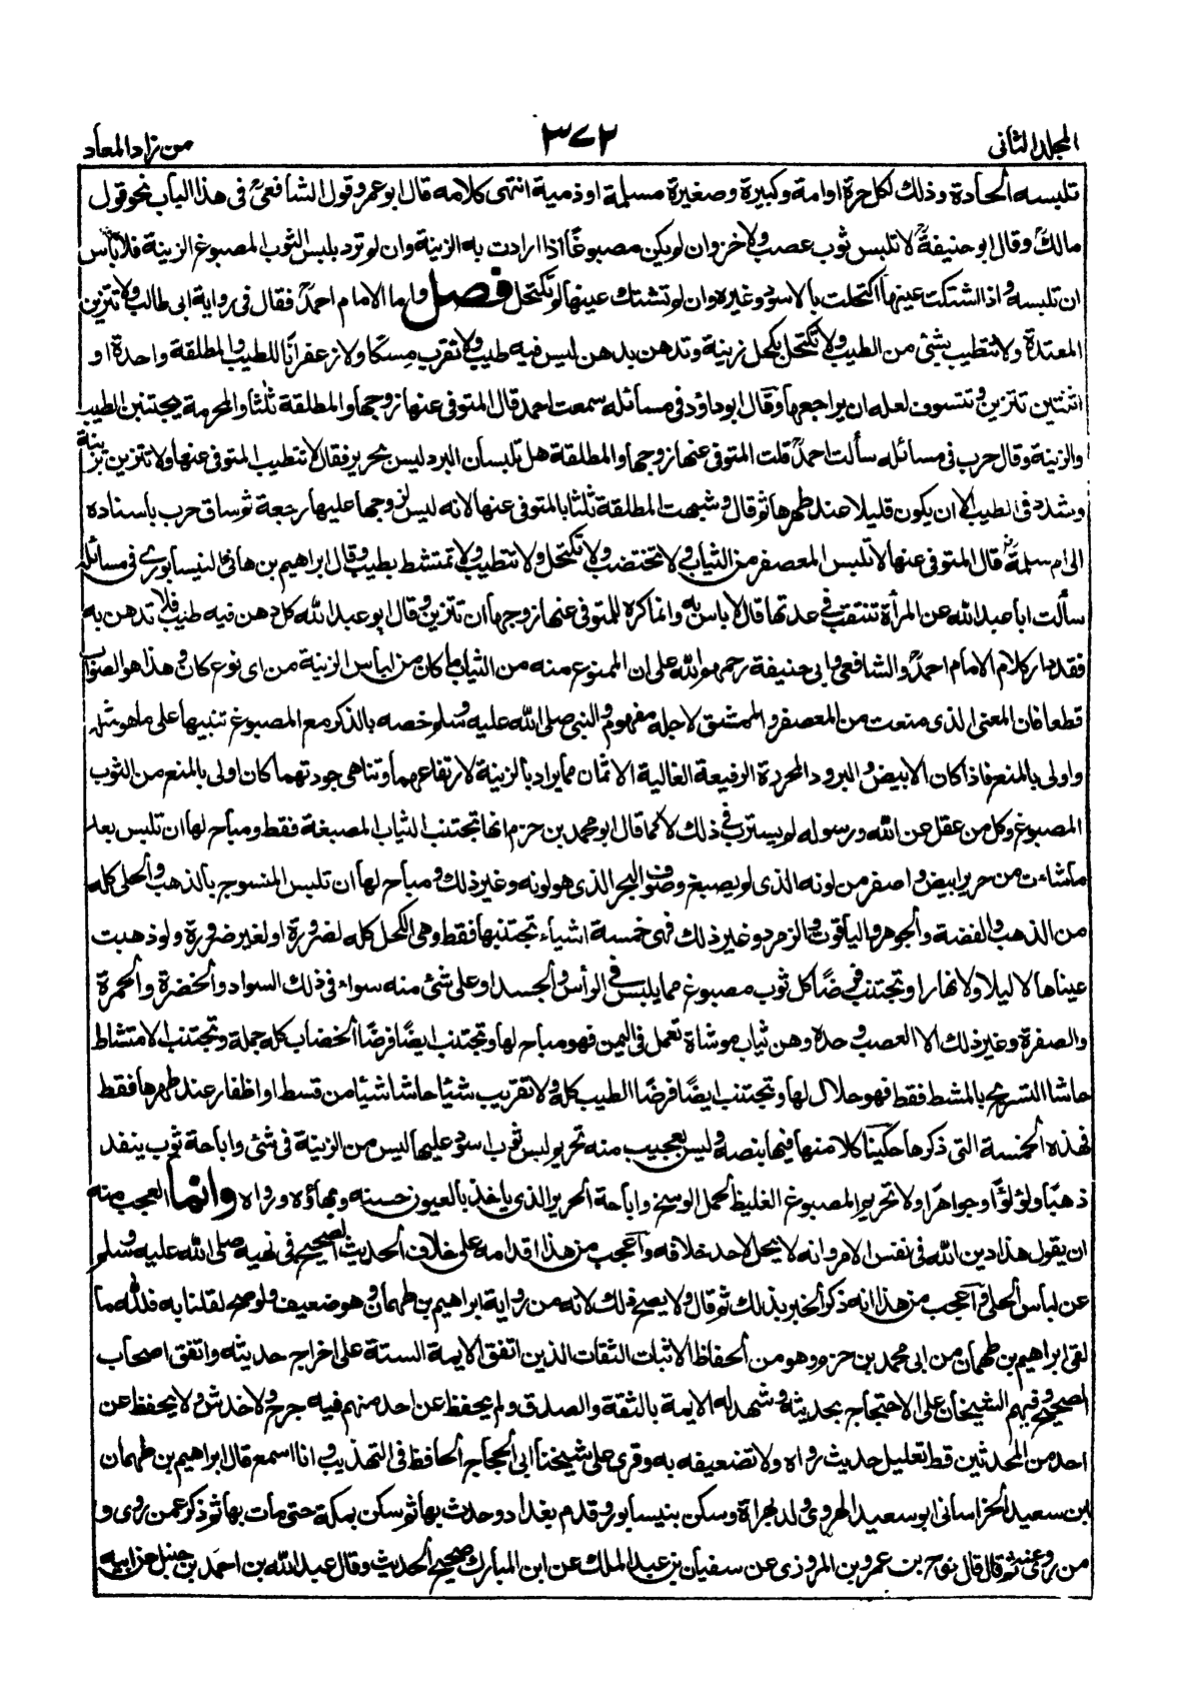 المجلد الثانی
٣٧٢
من زاد المعاد
تلبسه الحادة وذلك لكل حرة او امة وكبيرة وصغيرة مسلمة او ذمية انتهى كلامه قال ابو عمر وقول الشافعیؒ فى هذا الباب نحو قول
مالكؒ وقال ابو حنيفةؒ لا تلبس ثوب عصب ولا خز وان لم يكن مصبوغًا اذا ارادت به الزينة وان لم ترد بلبس الثوب المصبوغ الزينة فلا باس
ان تلبسه واذا اشتكت عينها اكتحلت بالاسود وغيره وان لم تشتك عينها لم تكتحل فصل واما الامام احمدؒ فقال فى رواية ابى طالب ولا تتزين
المعتدة ولا تتطيب بشئ من الطيب ولا تكتحل بكحل زينة وتدهن بدهن ليس فيه طيب ولا تقرب مسكا ولا زعفرانا للطيب والمطلقة واحدة او
اثنتين تتزين وتتسوف لعله ان يراجعها وقال ابو داؤد فى مسائله سمعت احمد قال المتوفى عنها زوجها والمطلقة ثلثا والمحرمة يجتنبن الطيب
والزينة وقال حرب فى مسائله سألت احمدؒ قلت المتوفى عنها زوجها والمطلقة هل تلبسان البرد ليس بحرير فقال لا تتطيب المتوفى عنها ولا تتزين بزينة
وشدد فى الطيب الا ان يكون قليلا عند طهرها ثم قال وشبهت المطلقة ثلثا بالمتوفى عنها لانه ليس لزوجها عليها رجعة ثم ساق حرب باسناده
الى ام سلمةؓ قال المتوفى عنها لا تلبس المعصفر من الثياب ولا تختضب ولا تكتحل ولا تتطيب ولا تمتشط بطيب وقال ابراهيم بن هانئ النيسابورى فى مسائله
سألت ابا عبد الله عن المرأة تنتقب فى عدتها قال لا باس به وانما كره للمتوفى عنها زوجها ان تتزين وقال ابو عبد الله كل دهن فيه طيب فلا تدهن به
فقد دار كلام الامام احمدؒ والشافعى وابى حنيفة رحمهم الله على ان الممنوع منه من الثياب ما كان من لباس الزينة من اى نوع كان وهذا هو الصواب
قطعا فان المعنى الذى منعت من المعصفر والممشق لاجله مفهوم والنبى صلى الله عليه وسلم خصه بالذكر مع المصبوغ تنبيها على ما هو مثله
واولى بالمنع فاذا كان الابيض والبرود المحررة الرفيعة الغالية الاثمان مما يراد بالزينة لارتفاعهما وتناهى جودتهما كان اولى بالمنع من الثوب
المصبوغ وكل من عقل عن الله ورسوله لم يسترب فى ذلك لا كما قال ابو محمد بن حزم انها تجتنب الثياب المصبغة فقط ومباح لها ان تلبس بعد
ما شاءت من حرير ابيض واصفر من لونه الذى لم يصبغ وصوف البحر الذى هو لونه وغير ذلك ومباح لها ان تلبس المنسوج بالذهب والحلى كله
من الذهب والفضة والجوهر والياقوت والزمرد وغير ذلك فهى خمسة اشياء تجتنبها فقط وهى الكحل كله لضرورة او لغير ضرورة ولو ذهبت
عيناها لا ليلا ولا نهارا وتجتنب فرضًا كل ثوب مصبوغ مما يلبس فى الرأس والجسد او على شئ منه سواء فى ذلك السواد والخضرة والحمرة
والصفرة وغير ذلك الا العصب وحده وهن ثياب موشاة تعمل فى اليمن فهو مباح لها وتجتنب ايضًا فرضًا الخضاب كله جملة وتجتنب الامتشاط
حاشا التسريح بالمشط فقط فهو حلال لها وتجتنب ايضًا فرضًا الطيب كله ولا تقرب شيئا حاشا شيئا من قسط او اظفار عند طهرها فقط
فهذه الخمسة التى ذكرها حكينا كلامه فيها بنصه وليس بعجيب منه تحريم لبس ثوب اسود عليها ليس من الزينة فى شئ واباحة ثوب يتقد
ذهبًا ولؤلؤًا وجواهرًا ولا تحريم المصبوغ الغليظ لحمل الوسخ واباحة الحرير الذى ياخذ بالعيون حسنه وبهاؤه ورواه وانما العجب منه
ان يقول هذا دين الله فى نفس الامر وانه لا يحل لاحد خلافه واعجب من هذا اقدامه على خلاف الحديث الصحيح فى نهيه صلى الله عليه وسلم
عن لباس الحلى واعجب من هذا انه ذكر الخبر بذلك ثم قال ولا يصح ذلك لانه من رواية ابراهيم بن طهمان وهو ضعيف ولو صح لقلنا به فلله ما
لقى ابراهيم بن طهمان من ابى محمد بن حزم وهو من الحفاظ الاثبات الثقات الذين اتفق الايمة الستة على اخراج حديثه واتفق اصحاب
الصحيح وفيهم الشيخان على الاحتجاج بحديثه وشهد له الايمة بالثقة والصدق ولم يحفظ عن احد منهم فيه جرح ولا خدش ولا يحفظ عن
احد من المحدثين قط تعليل حديث رواه ولا تضعيفه به وقرئ على شيخنا ابى الحجاج الحافظ فى التهذيب وانا اسمع قال ابراهيم بن طهمان
ابن سعيد الخراسانى ابو سعيد الهروى ولد بهراة وسكن بنيسابور وقدم بغداد وحدث بها ثم سكن بمكة حتى مات بها ثم ذكر عمن روى و
من روى عنه ثم قال قال نوح بن عمرو بن المروزى عن سفيان بن عبد الملك عن ابن المبارك صحيح الحديث وقال عبد الله بن احمد بن حنبل عن ابيه